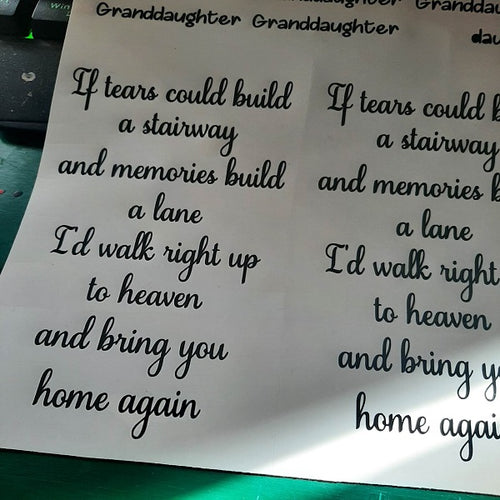 Granddaughter Granddaughter
If tears could build
a stairway
and memories build
a lane
I'd walk right up
to heaven
and bring you
home again
If tears could
a stairway
and memories
a lane
I'd walk right
to heaven
and bring
home